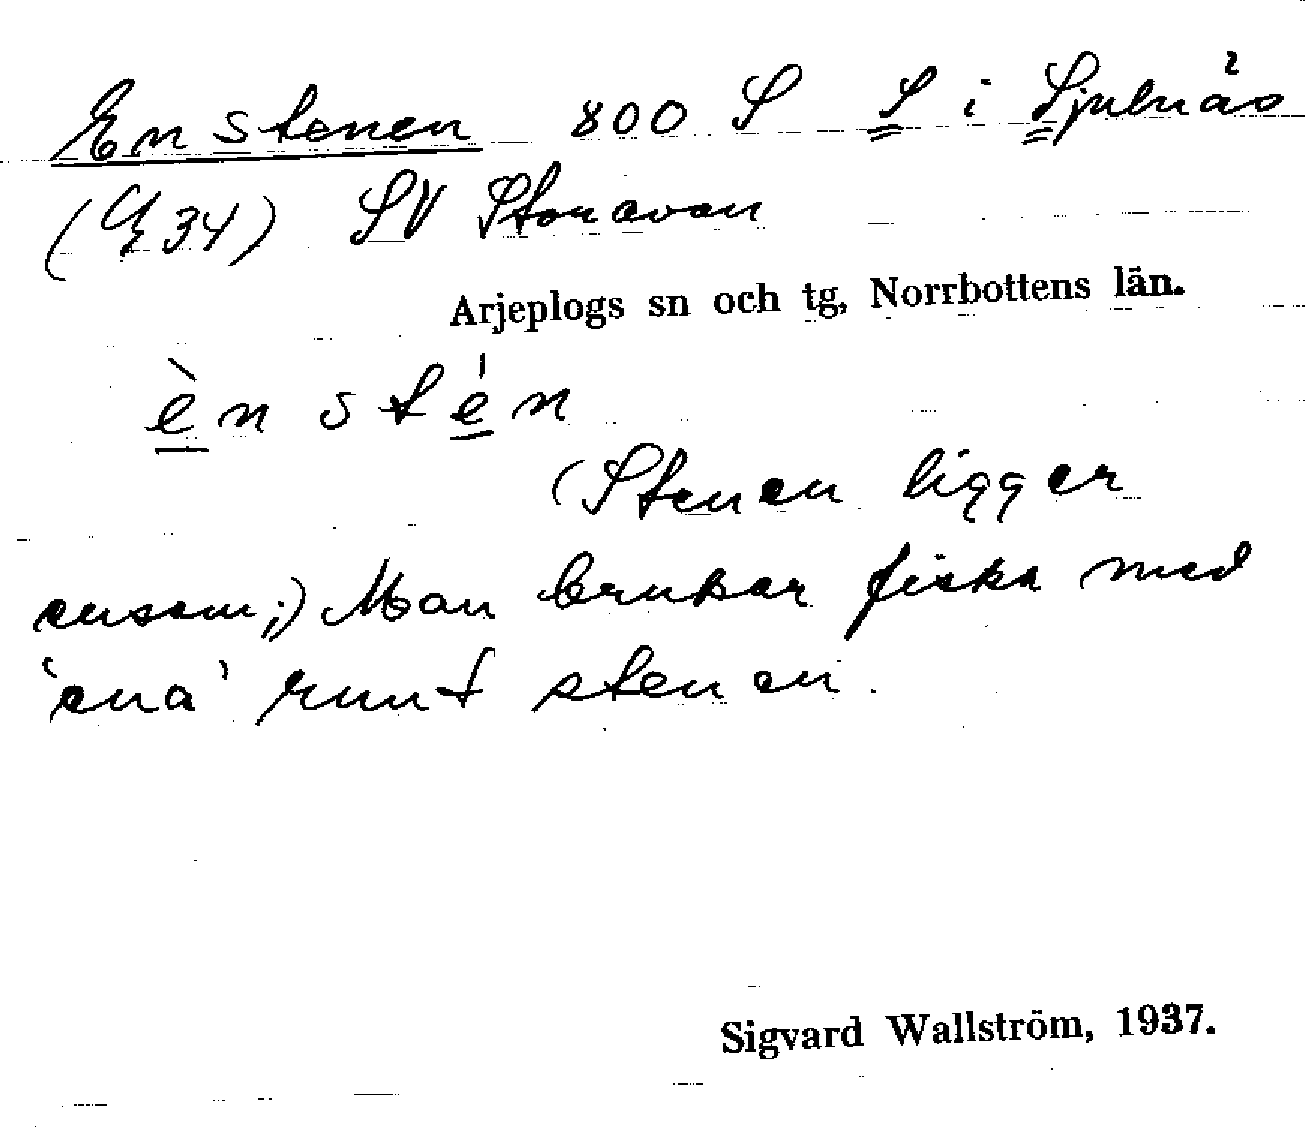 Enstenen 800 S S i Sjulnäs
(G34) SV Storavan
Arjeplogs sn och tg, Norrbottens län.
èn stén
(Stenen ligger
ensam;) Man brukar fiska med
'ena' runt stenen.
Sigvard Wallström, 1937.